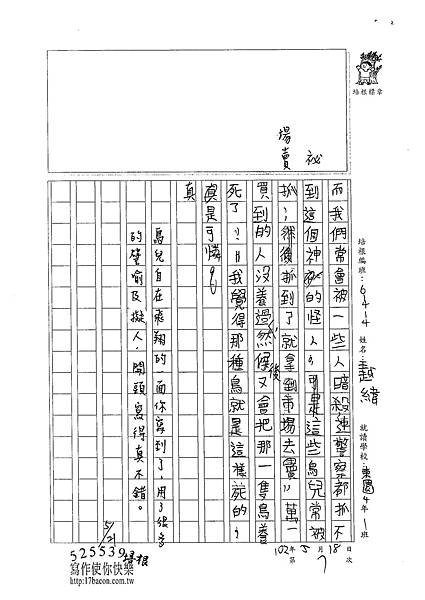 培根標章
培根編班：6414 姓名：越緒 就讀學校：東園4年1班
102年5月18日
第7次
而我們常會被一些人暗殺連警察都抓不
到這個神祕的怪人，可是這些鳥兒常被
抓，然後抓到了就拿到市場去賣，萬一
買到的人沒養過，然後又會把那一隻鳥養
死了！！我覺得那種鳥就是這樣死的，
真是可憐
真
祕
場
賣
鳥兒自在飛翔的一面你寫到了，用了很多
的譬喻及擬人，開頭寫得真不錯。
5/21
培根
525539
寫作使你快樂
http://17bacon.com.tw